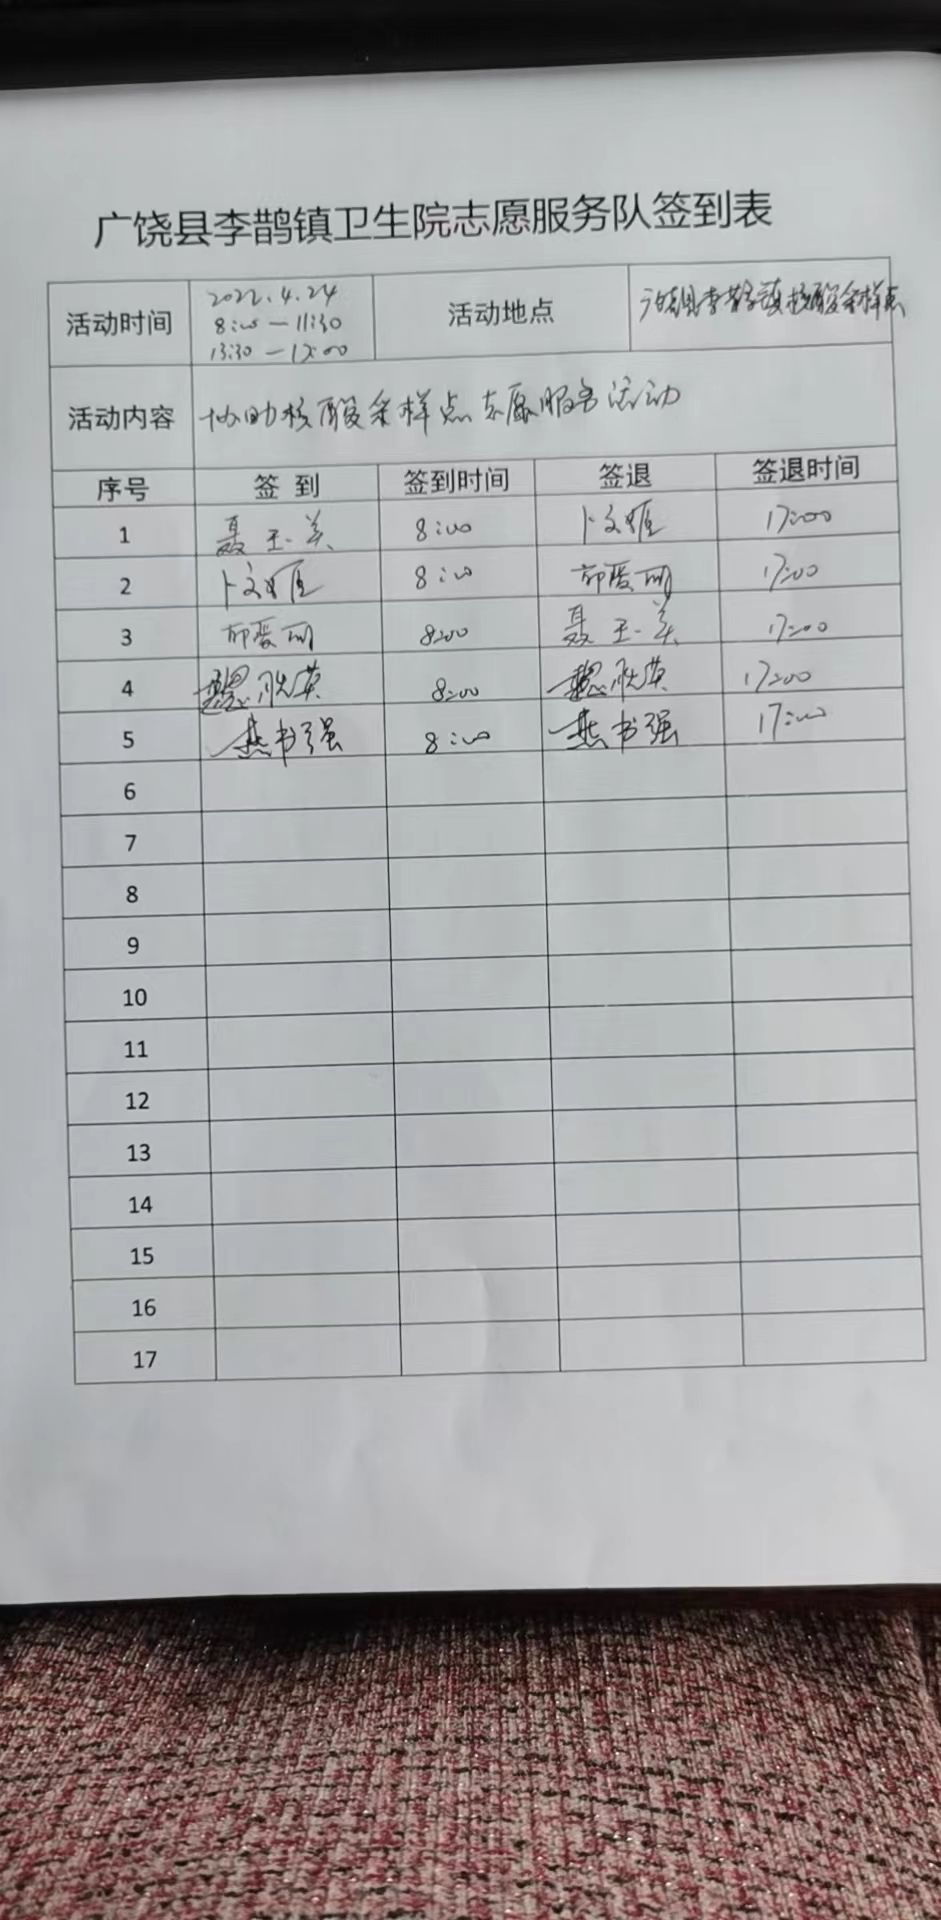 广饶县李鹊镇卫生院志愿服务队签到表
活动时间 2022.4.24 8:00—11:30 13:30—17:00 活动地点 广饶县李鹊镇核酸采样点
活动内容 协助核酸采样点志愿服务活动
序号 签到 签到时间 签退 签退时间
1 聂玉美 8:00 卜文雅 17:00
2 卜文雅 8:00 17:00
3 8:00 聂玉美 17:00
4 8:00 17:00
5 燕书强 8:00 燕书强 17:00
6
7
8
9
10
11
12
13
14
15
16
17